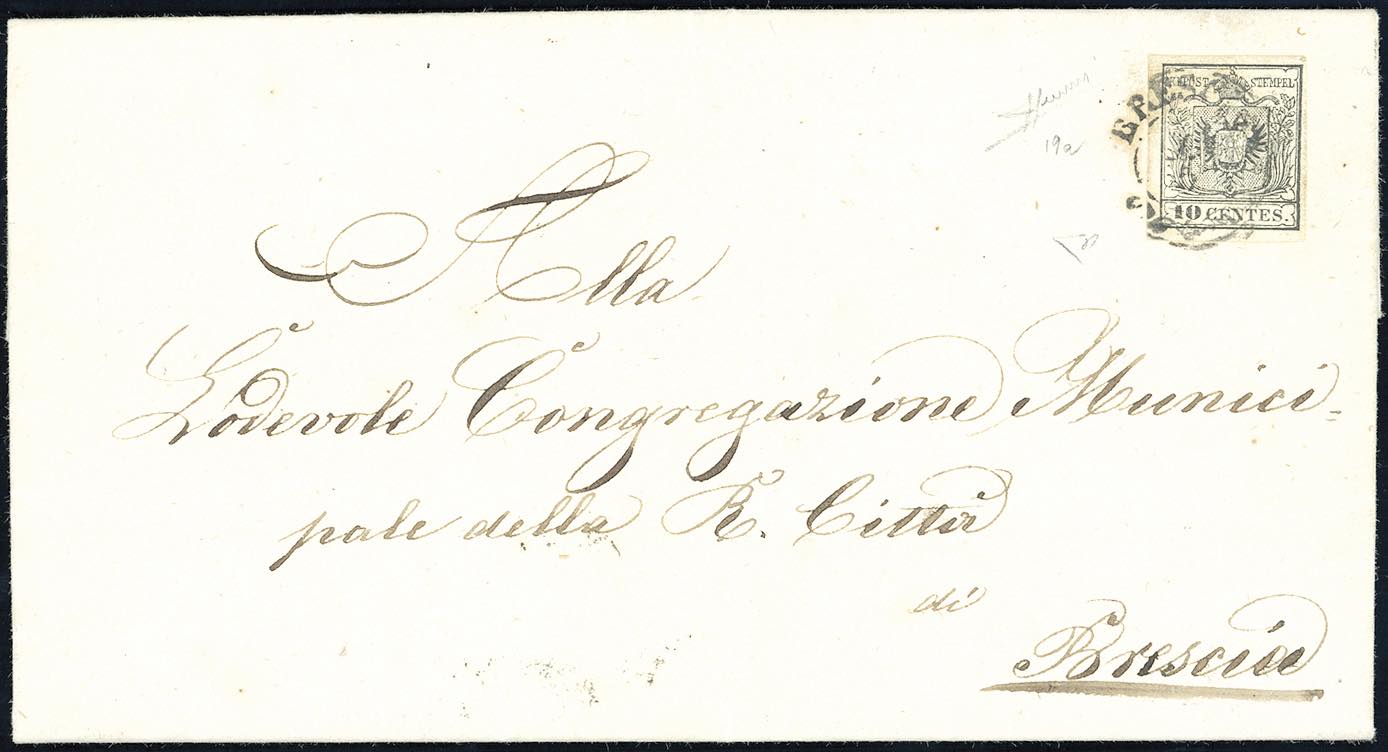 KKPOST-STEMPEL
10 CENTES.
19a
Alla
Lodevole Congregazione Munici=
pale della R. Città
di
Brescia